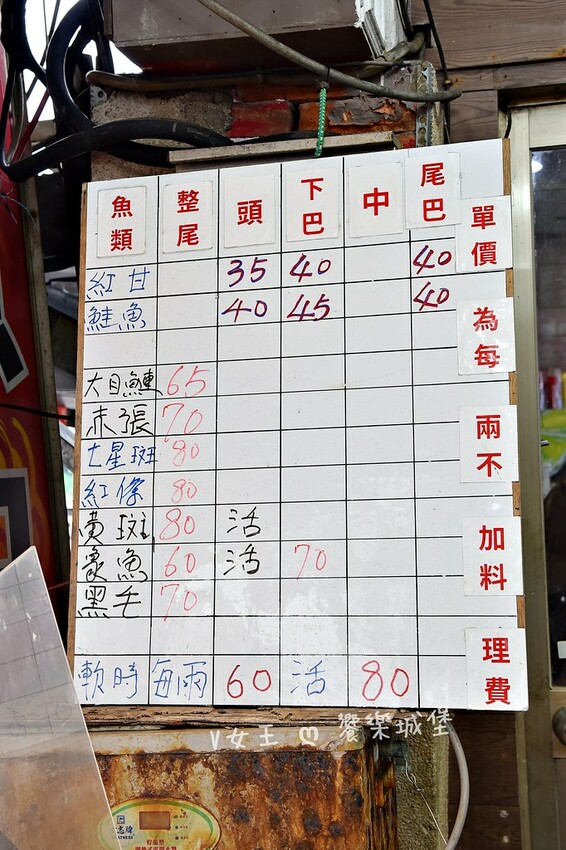 魚類 整尾 頭 下巴 中 尾巴
紅甘 35 40 40
鮭魚 40 45 40
大目鰱 65
末張 70
七星斑 80
紅條 80
黃斑 80 活
象魚 60 活 70
黑毛 70
軟時 每兩 60 活 80
單價為每兩不加料理費
V女王 饗樂城堡